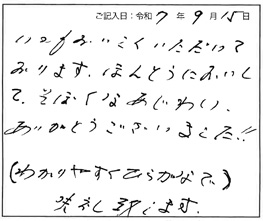 ご記入日：令和 7 年 9 月 15 日
いつもおいしくいただいて
おります。ほんとうにおいし
て、そぼくなあじわい、
ありがとうございました!!
(わかりやすくひらがなで)
失礼致します